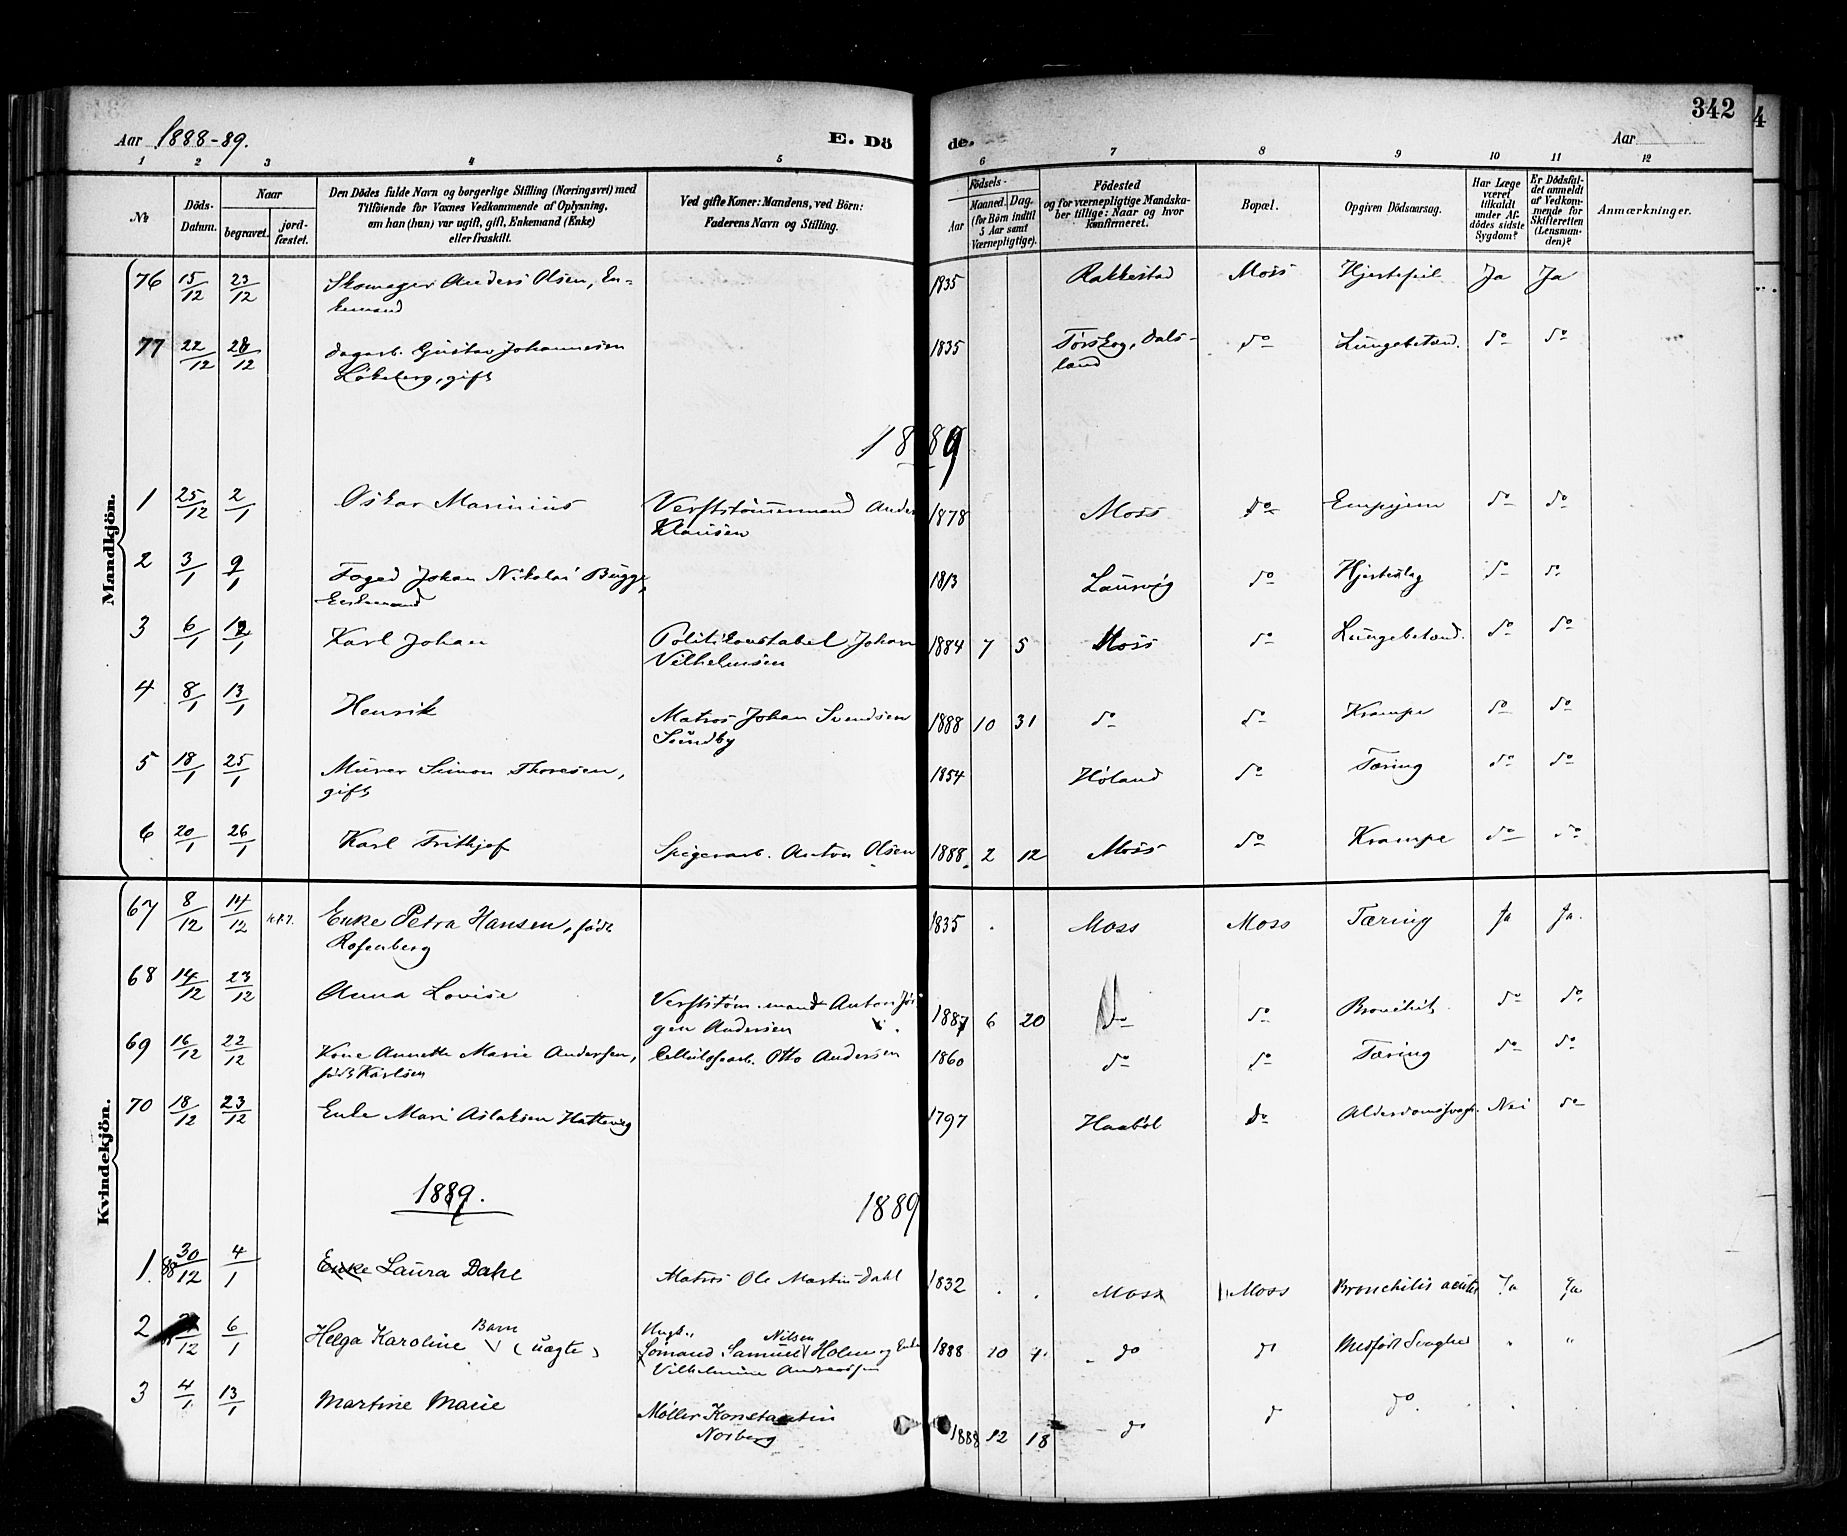 342
Aar 1888-89.
E. Dö de.
Aar
1 2 3 4 5 6 7 8 9 10 11 12
No
Döds-Datum.
Naar
begravet.
jord-fæstet.
Den Dödes fulde Navn og borgerlige Stilling (Næringsvei) med
Tilföiende for Voxnes Vedkommende af Oplysning,
om han (hun) var ugift, gift, Enkemand (Enke)
eller fraskilt.
Ved gifte Koner: Mandens, ved Börn:
Faderens Navn og Stilling.
Födsels-
Aar
Maaned. Dag.
(for Börn indtil
5 Aar samt
Værnepligtige).
Födested
og for værnepligtige Mandska-
ber tillige: Naar og hvor
konfirmeret.
Bopæl.
Opgiven Dödsaarsag.
Har Læge
været
tilkaldt
under Af-
dödes sidste
Sygdom?
Er Dödsfal-
det anmeldt
af Vedkom-
mende for
Skifteretten
(Lensman-
den)?
Anmærkninger.
Mandkjön.
76 15/12 23/12 Skomager Anders Olsen, En-
kemand 1835 Rakkestad Moss Hjertefeil Ja Ja
77 22/12 28/12 Dagarb. Gustav Johannesen
Løkeberg, gift 1835 Tørskog, Dals-
land do Lungebetænd. do do
1889
1 25/12 2/1 Oskar Marinius Verftstømmermand Anders
Klausen 1878 Moss do Empyem do do
2 3/1 9/1 Foged Johan Nikolai Bugge,
Enkemand 1813 Laurvig do Hjerteslag do do
3 6/1 12/1 Karl Johan Politikonstabel Johan
Vilhelmsen 1884 7 5 Moss do Lungebetænd. do do
4 8/1 13/1 Henrik Matros Johan Svendsen
Sundby 1888 10 31 do do Krampe do do
5 18/1 25/1 Murer Simon Thoresen,
gift 1854 Høland do Tæring do do
6 20/1 26/1 Karl Frithjof Spigerarb. Anton Olsen 1888 2 12 Moss do Krampe do do
Kvindekjön.
67 8/12 14/12 Enke Petra Hansen, født
Rosenberg 1835 Moss Moss Tæring Ja Ja.
68 14/12 23/12 Anna Lovise Verftstøm.mand Anton Jør
gen Andersen 1887 6 20 do do Bronchit. do do
69 16/12 22/12 Kone Annette Marie Andersen,
født Karlsen Cellulosearb. Otto Andersen 1860 do do Tæring do do
70 18/12 23/12 Enke Mari Aslaksen Hattevig 1797 Haabøl do Alderdomssvagh. Nei do
1889. 1889
1. 88 30/12 4/1 Enke Laura Dahl Matros Ole Martin Dahl 1832 Moss Moss Bronchitis acuta Ja Ja
2 12 6/1 Helga Karoline Barn (uægte) Ungk., Sømand Samuel Nilsen Holm og Enke
Vilhelmine Andreassen 1888 10 do do Medfødt Svaghed " "
3 4/1 13/1 Martine Marie Møller Konstantin
Norberg 1888 12 18 do d do. " "